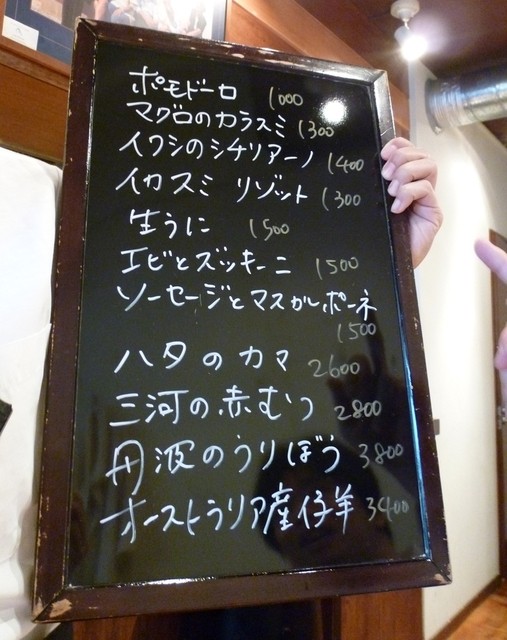 ポモドーロ 1000
マグロのカラスミ 1300
イワシのシチリアーノ 1400
イカスミ リゾット 1300
生うに 1500
エビとズッキーニ 1500
ソーセージとマスカルポーネ
1500
ハタのカマ 2600
三河の赤むつ 2800
丹波のうりぼう 3800
オーストラリア産仔羊 3400